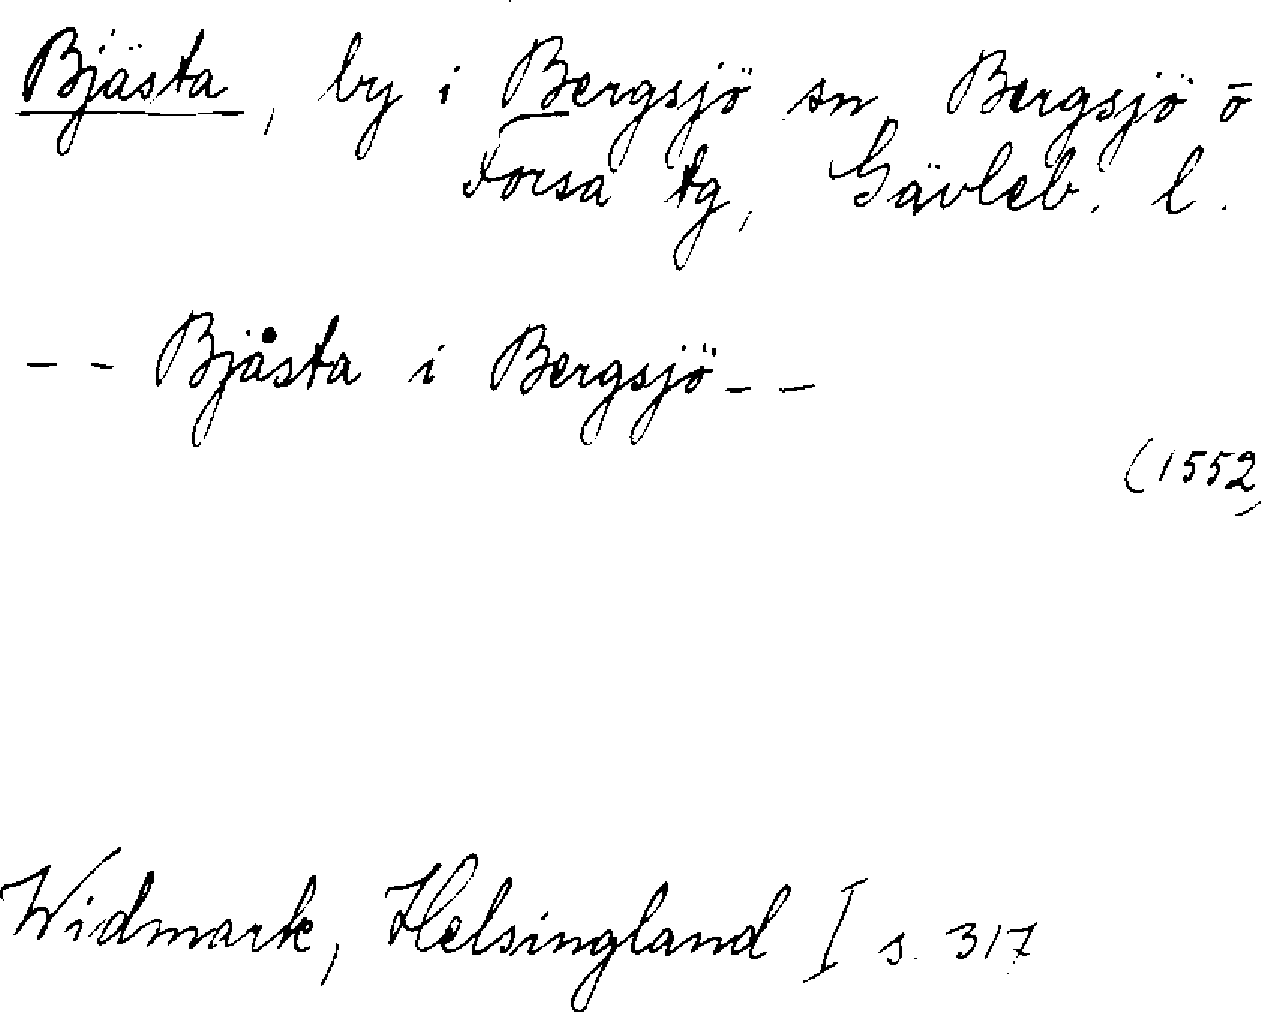 Bjästa, by i Bergsjö sn, Bergsjö o
Forsa tg, Gävleb. l.
-- Bjåsta i Bergsjö --
(1552)
Widmark, Helsingland I s. 317